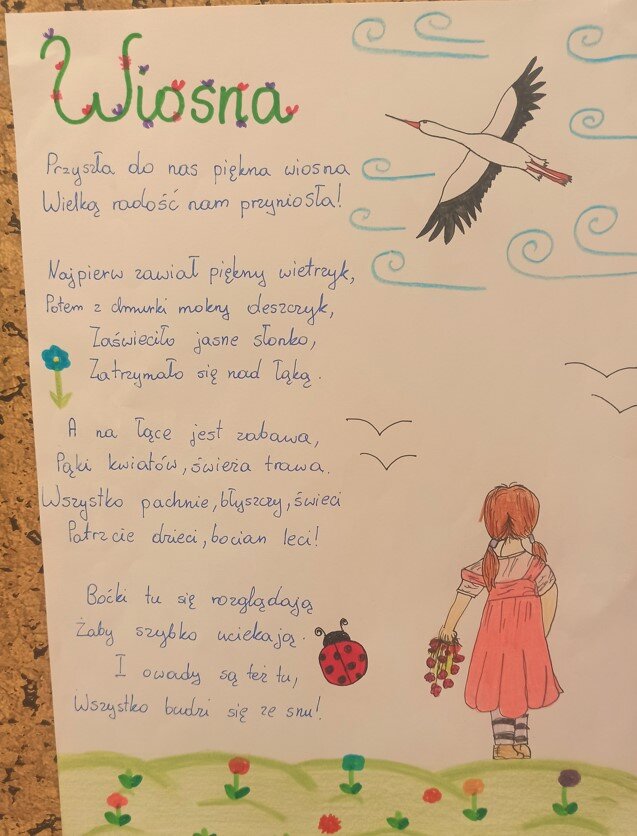 Wiosna
Przyszła do nas piękna wiosna
Wielką radość nam przyniosła!
Najpierw zawiał piękny wietrzyk,
Potem z chmurki mokry deszczyk,
Zaświeciło jasne słonko,
Zatrzymało się nad łąką.
A na łące jest zabawa,
Pąki kwiatów, świeża trawa.
Wszystko pachnie, błyszczy, świeci
Patrzcie dzieci, bocian leci!
Boćki tu się rozglądają
Żaby szybko uciekają.
I owady są też tu,
Wszystko budzi się ze snu!